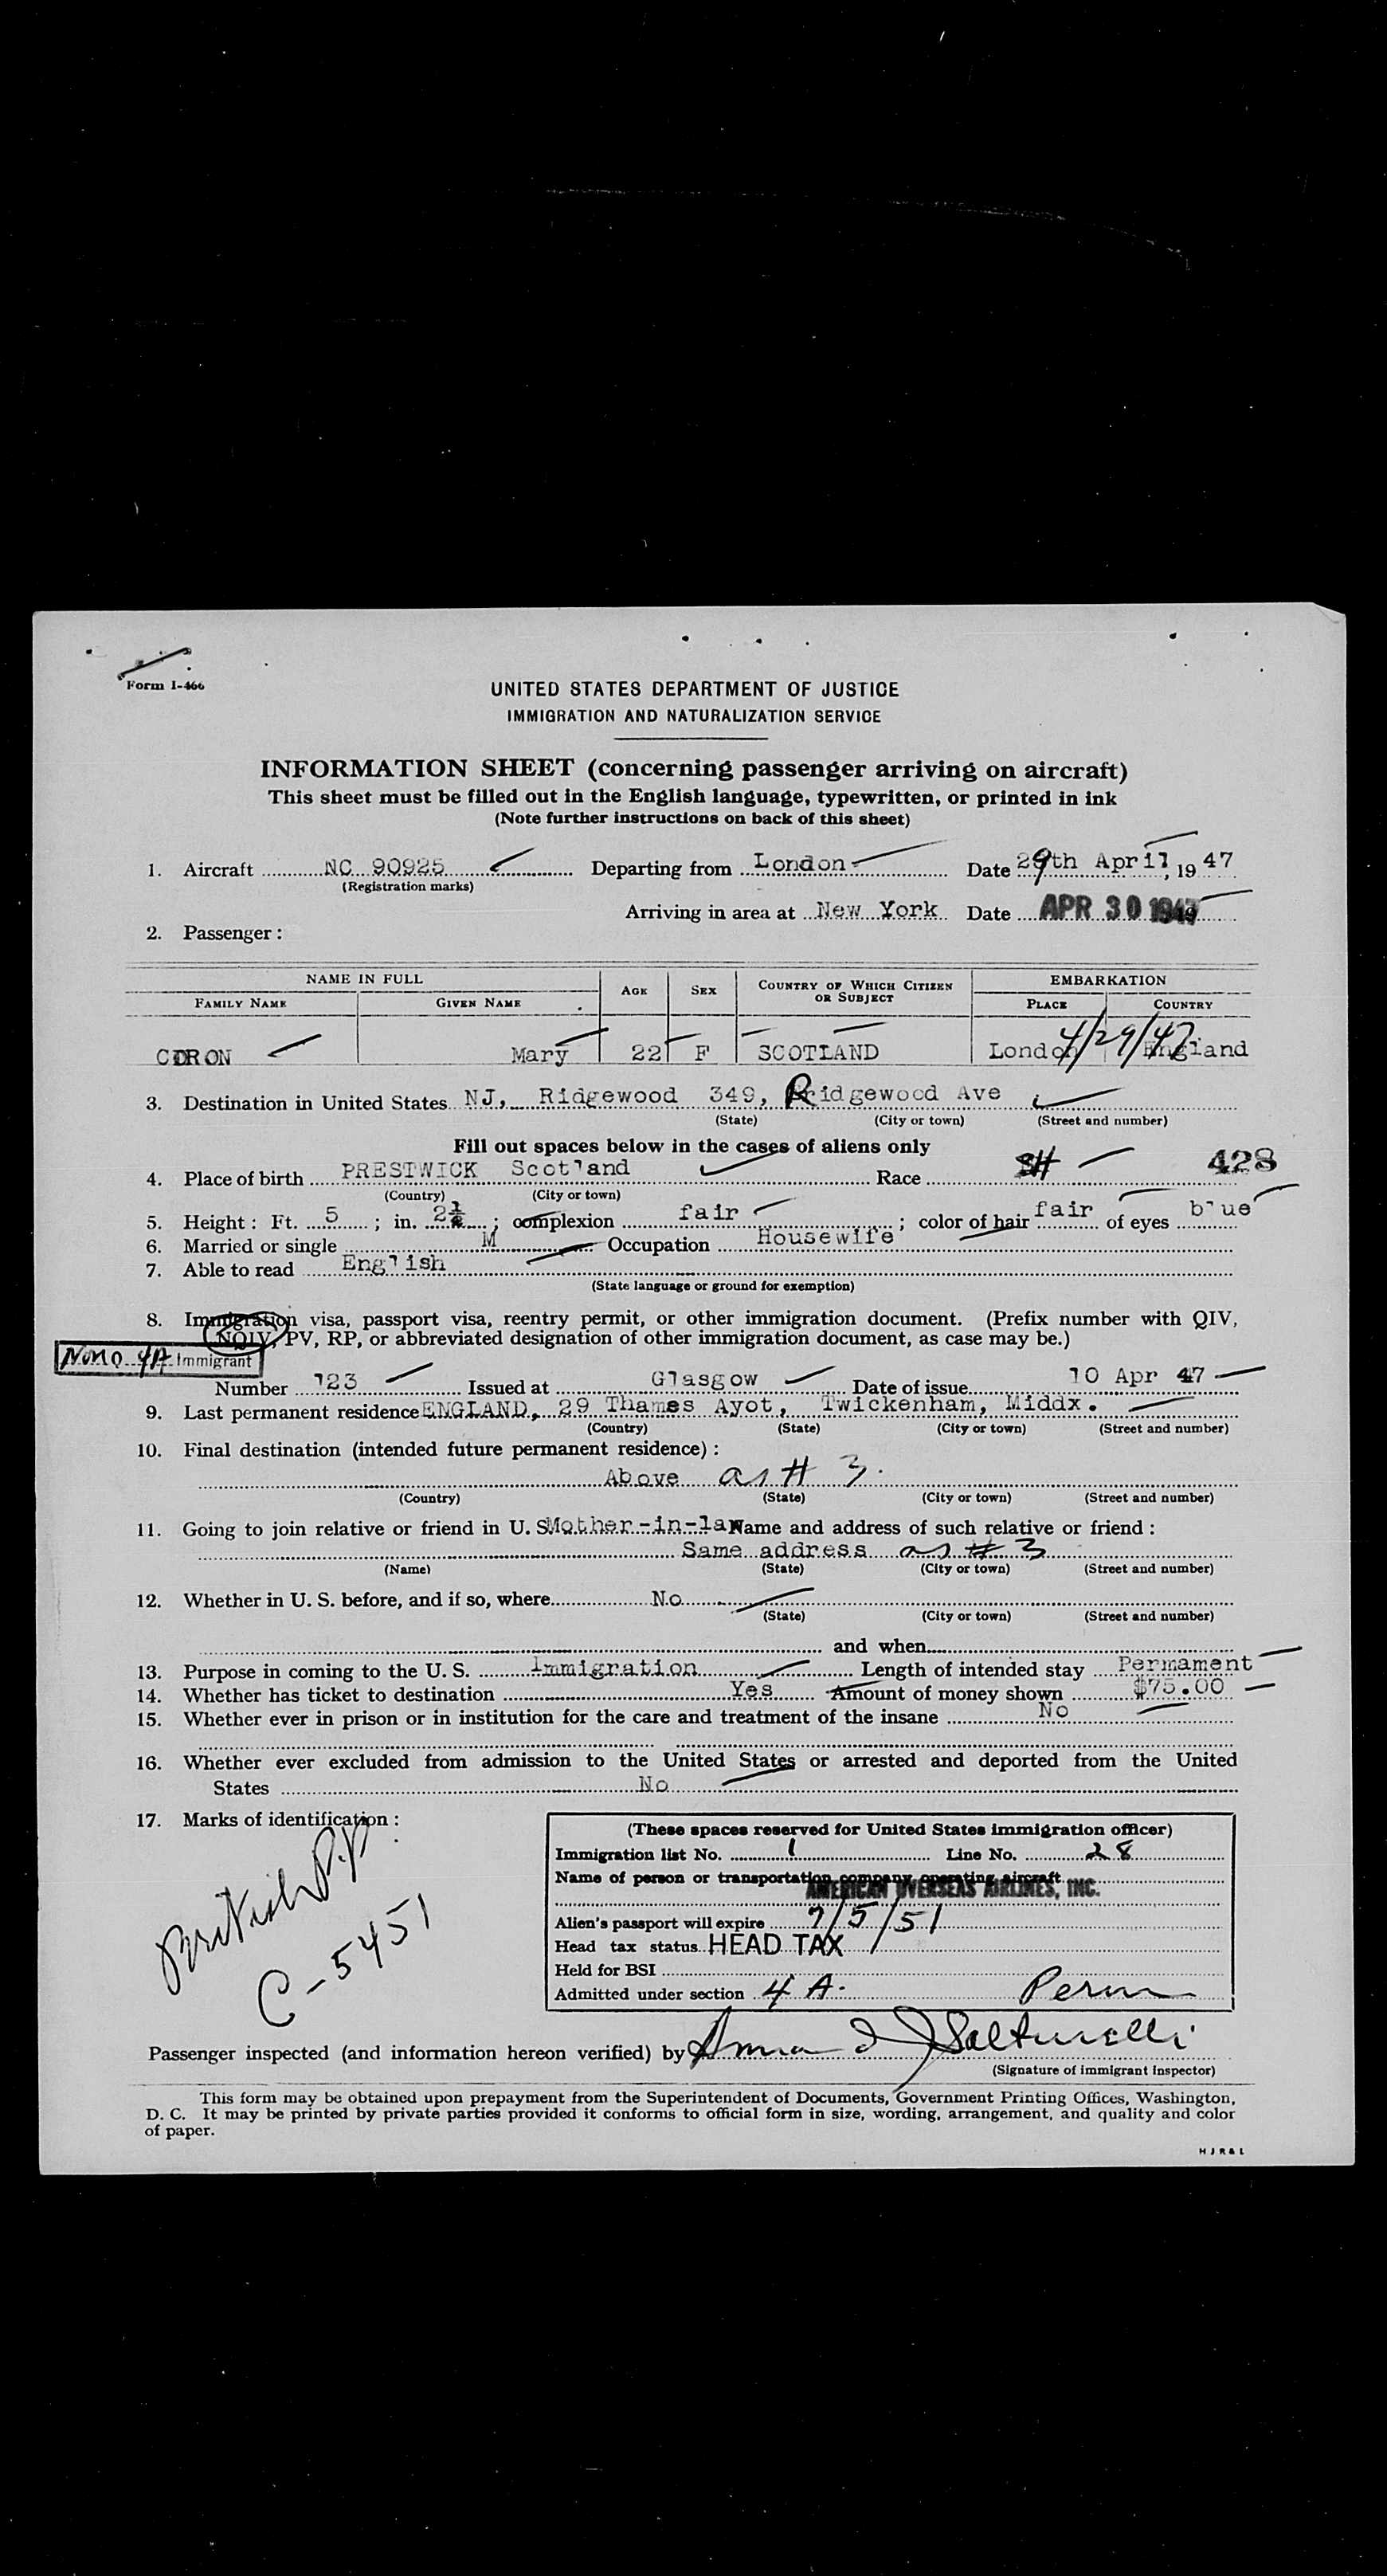 Form I-466
UNITED STATES DEPARTMENT OF JUSTICE
IMMIGRATION AND NATURALIZATION SERVICE
INFORMATION SHEET (concerning passenger arriving on aircraft)
This sheet must be filled out in the English language, typewritten, or printed in ink
(Note further instructions on back of this sheet)
1. Aircraft NC 90925 Departing from London Date 29th April, 19 47
(Registration marks)
Arriving in area at New York Date APR 30 1947
2. Passenger:
NAME IN FULL AGE SEX COUNTRY OF WHICH CITIZEN OR SUBJECT EMBARKATION
FAMILY NAME GIVEN NAME PLACE COUNTRY
Mary 22 F SCOTLAND London 4/29/47 England
3. Destination in United States NJ, Ridgewood 349, Ridgewood Ave
(State) (City or town) (Street and number)
Fill out spaces below in the cases of aliens only
4. Place of birth PRESTWICK Scotland Race SH 428
(Country) (City or town)
5. Height: Ft. 5 ; in. 2½ ; complexion fair ; color of hair fair of eyes blue
6. Married or single M Occupation Housewife
7. Able to read English
(State language or ground for exemption)
8. Immigration visa, passport visa, reentry permit, or other immigration document. (Prefix number with QIV,
NQIV, PV, RP, or abbreviated designation of other immigration document, as case may be.)
4A Immigrant
Number 123 Issued at Glasgow Date of issue 10 Apr 47
9. Last permanent residence ENGLAND, 29 Thames Ayot, Twickenham, Middx.
(Country) (State) (City or town) (Street and number)
10. Final destination (intended future permanent residence):
Above as # 3.
(Country) (State) (City or town) (Street and number)
11. Going to join relative or friend in U. S. Mother-in-law Name and address of such relative or friend:
Same address as # 3
(Name) (State) (City or town) (Street and number)
12. Whether in U. S. before, and if so, where No
(State) (City or town) (Street and number)
and when
13. Purpose in coming to the U. S. Immigration Length of intended stay Permament
14. Whether has ticket to destination Yes Amount of money shown $75.00
15. Whether ever in prison or in institution for the care and treatment of the insane No
16. Whether ever excluded from admission to the United States or arrested and deported from the United
States No
17. Marks of identification:
British P.P
C-5451
(These spaces reserved for United States immigration officer)
Immigration list No. 1 Line No. 28
Name of person or transportation company operating aircraft
AMERICAN OVERSEAS AIRLINES, INC.
Alien's passport will expire 7/5/51
Head tax status HEAD TAX
Held for BSI
Admitted under section 4 A. Perm
Passenger inspected (and information hereon verified) by
(Signature of immigrant inspector)
This form may be obtained upon prepayment from the Superintendent of Documents, Government Printing Offices, Washington,
D. C. It may be printed by private parties provided it conforms to official form in size, wording, arrangement, and quality and color
of paper.
H J R & L